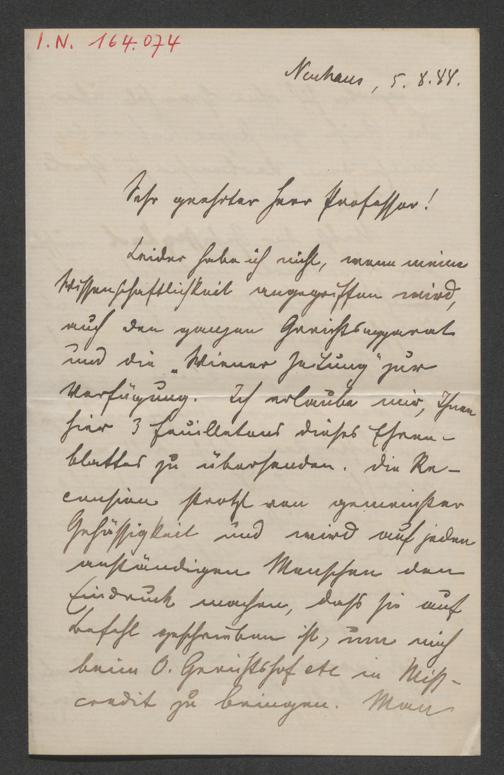 I.N. 164.074
Neuhaus, 5. 8. 44.
Sehr geehrter Herr Professor!
Leider habe ich nicht, wenn meine
Wissenschaftlichkeit angegriffen wird,
auch den ganzen Gerichtsapparat
und die „Wiener Zeitung" zur
Verfügung. Ich erlaube mir, Ihnen
hier 3 Feuilletons dieses Ehren-
blattes zu übersenden. Die Re-
cension strotzt von gemeinster
Gehässigkeit und wird auf jeden
anständigen Menschen den
Eindruck machen, daß sie auf
Befehl geschrieben ist, um mich
beim O. Gerichtshof etc in Miß-
credit zu bringen. Man